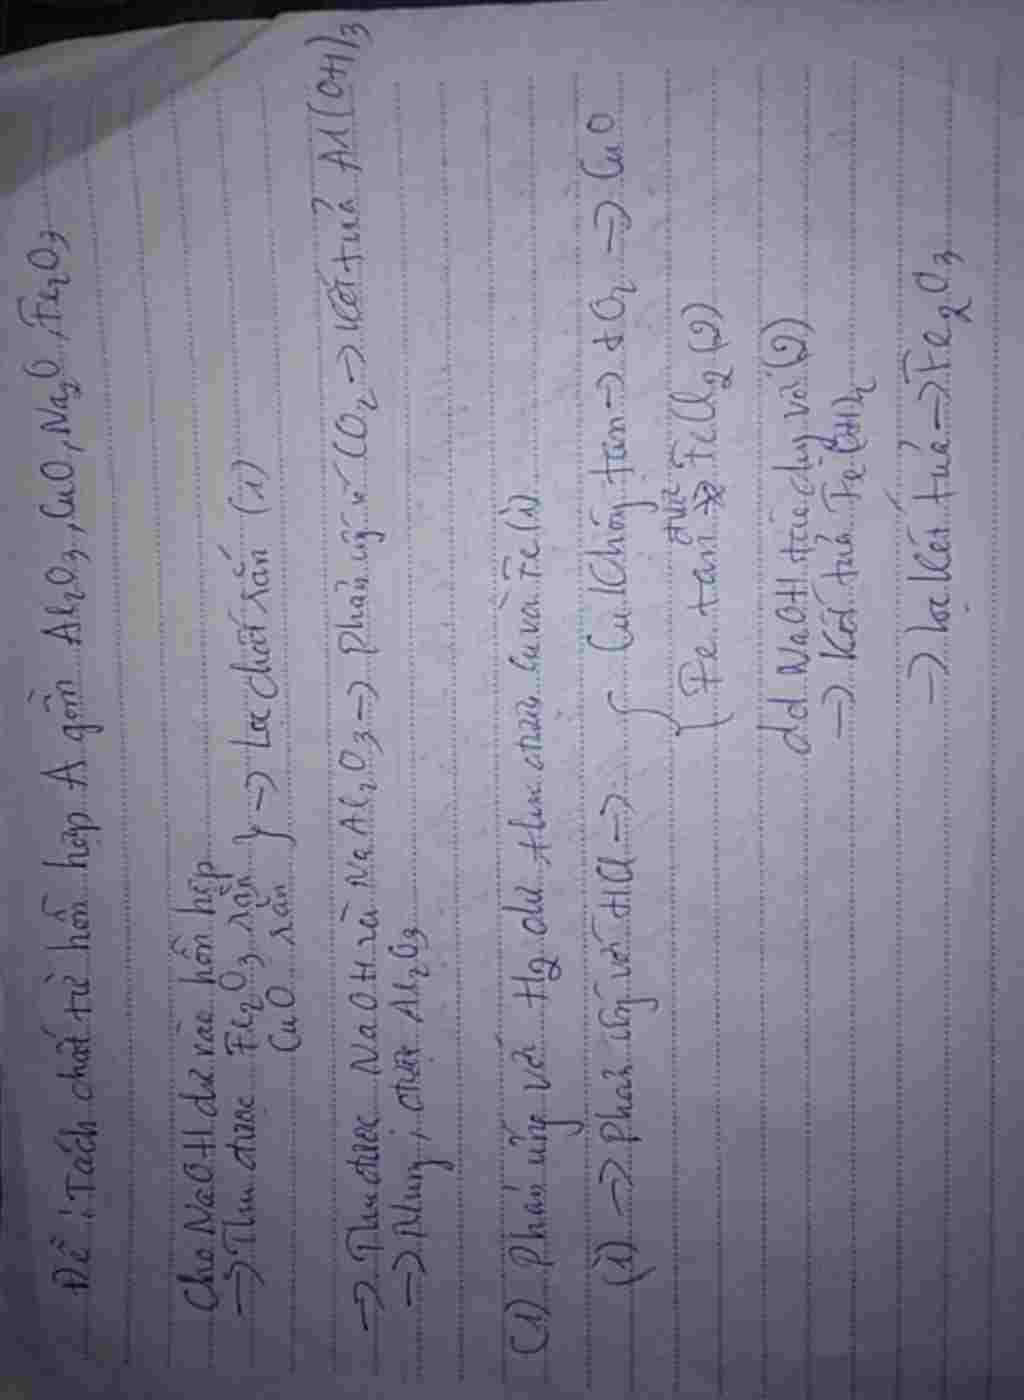 Đề : Tách chất từ hỗn hợp A gồm Al2O3, CuO, Na2O, Fe2O3
Cho NaOH dư vào hỗn hợp
→ Thu được Fe2O3 rắn
CuO rắn } → Lọc chất rắn (1)
→ Thu được NaOH và NaAl2O3 → Phản ứng vs CO2 → kết tủa Al(OH)3
→ Nung, được Al2O3
(1) Phản ứng với H2 dư thu được Cu và Fe (i)
(i) → Phản ứng với HCl → { Cu không tan → + O2 → CuO
Fe tan được FeCl2 (2)
dd NaOH tiếp dụng với (2)
→ kết tủa Fe(OH)2
→ lọc kết tủa → Fe2O3